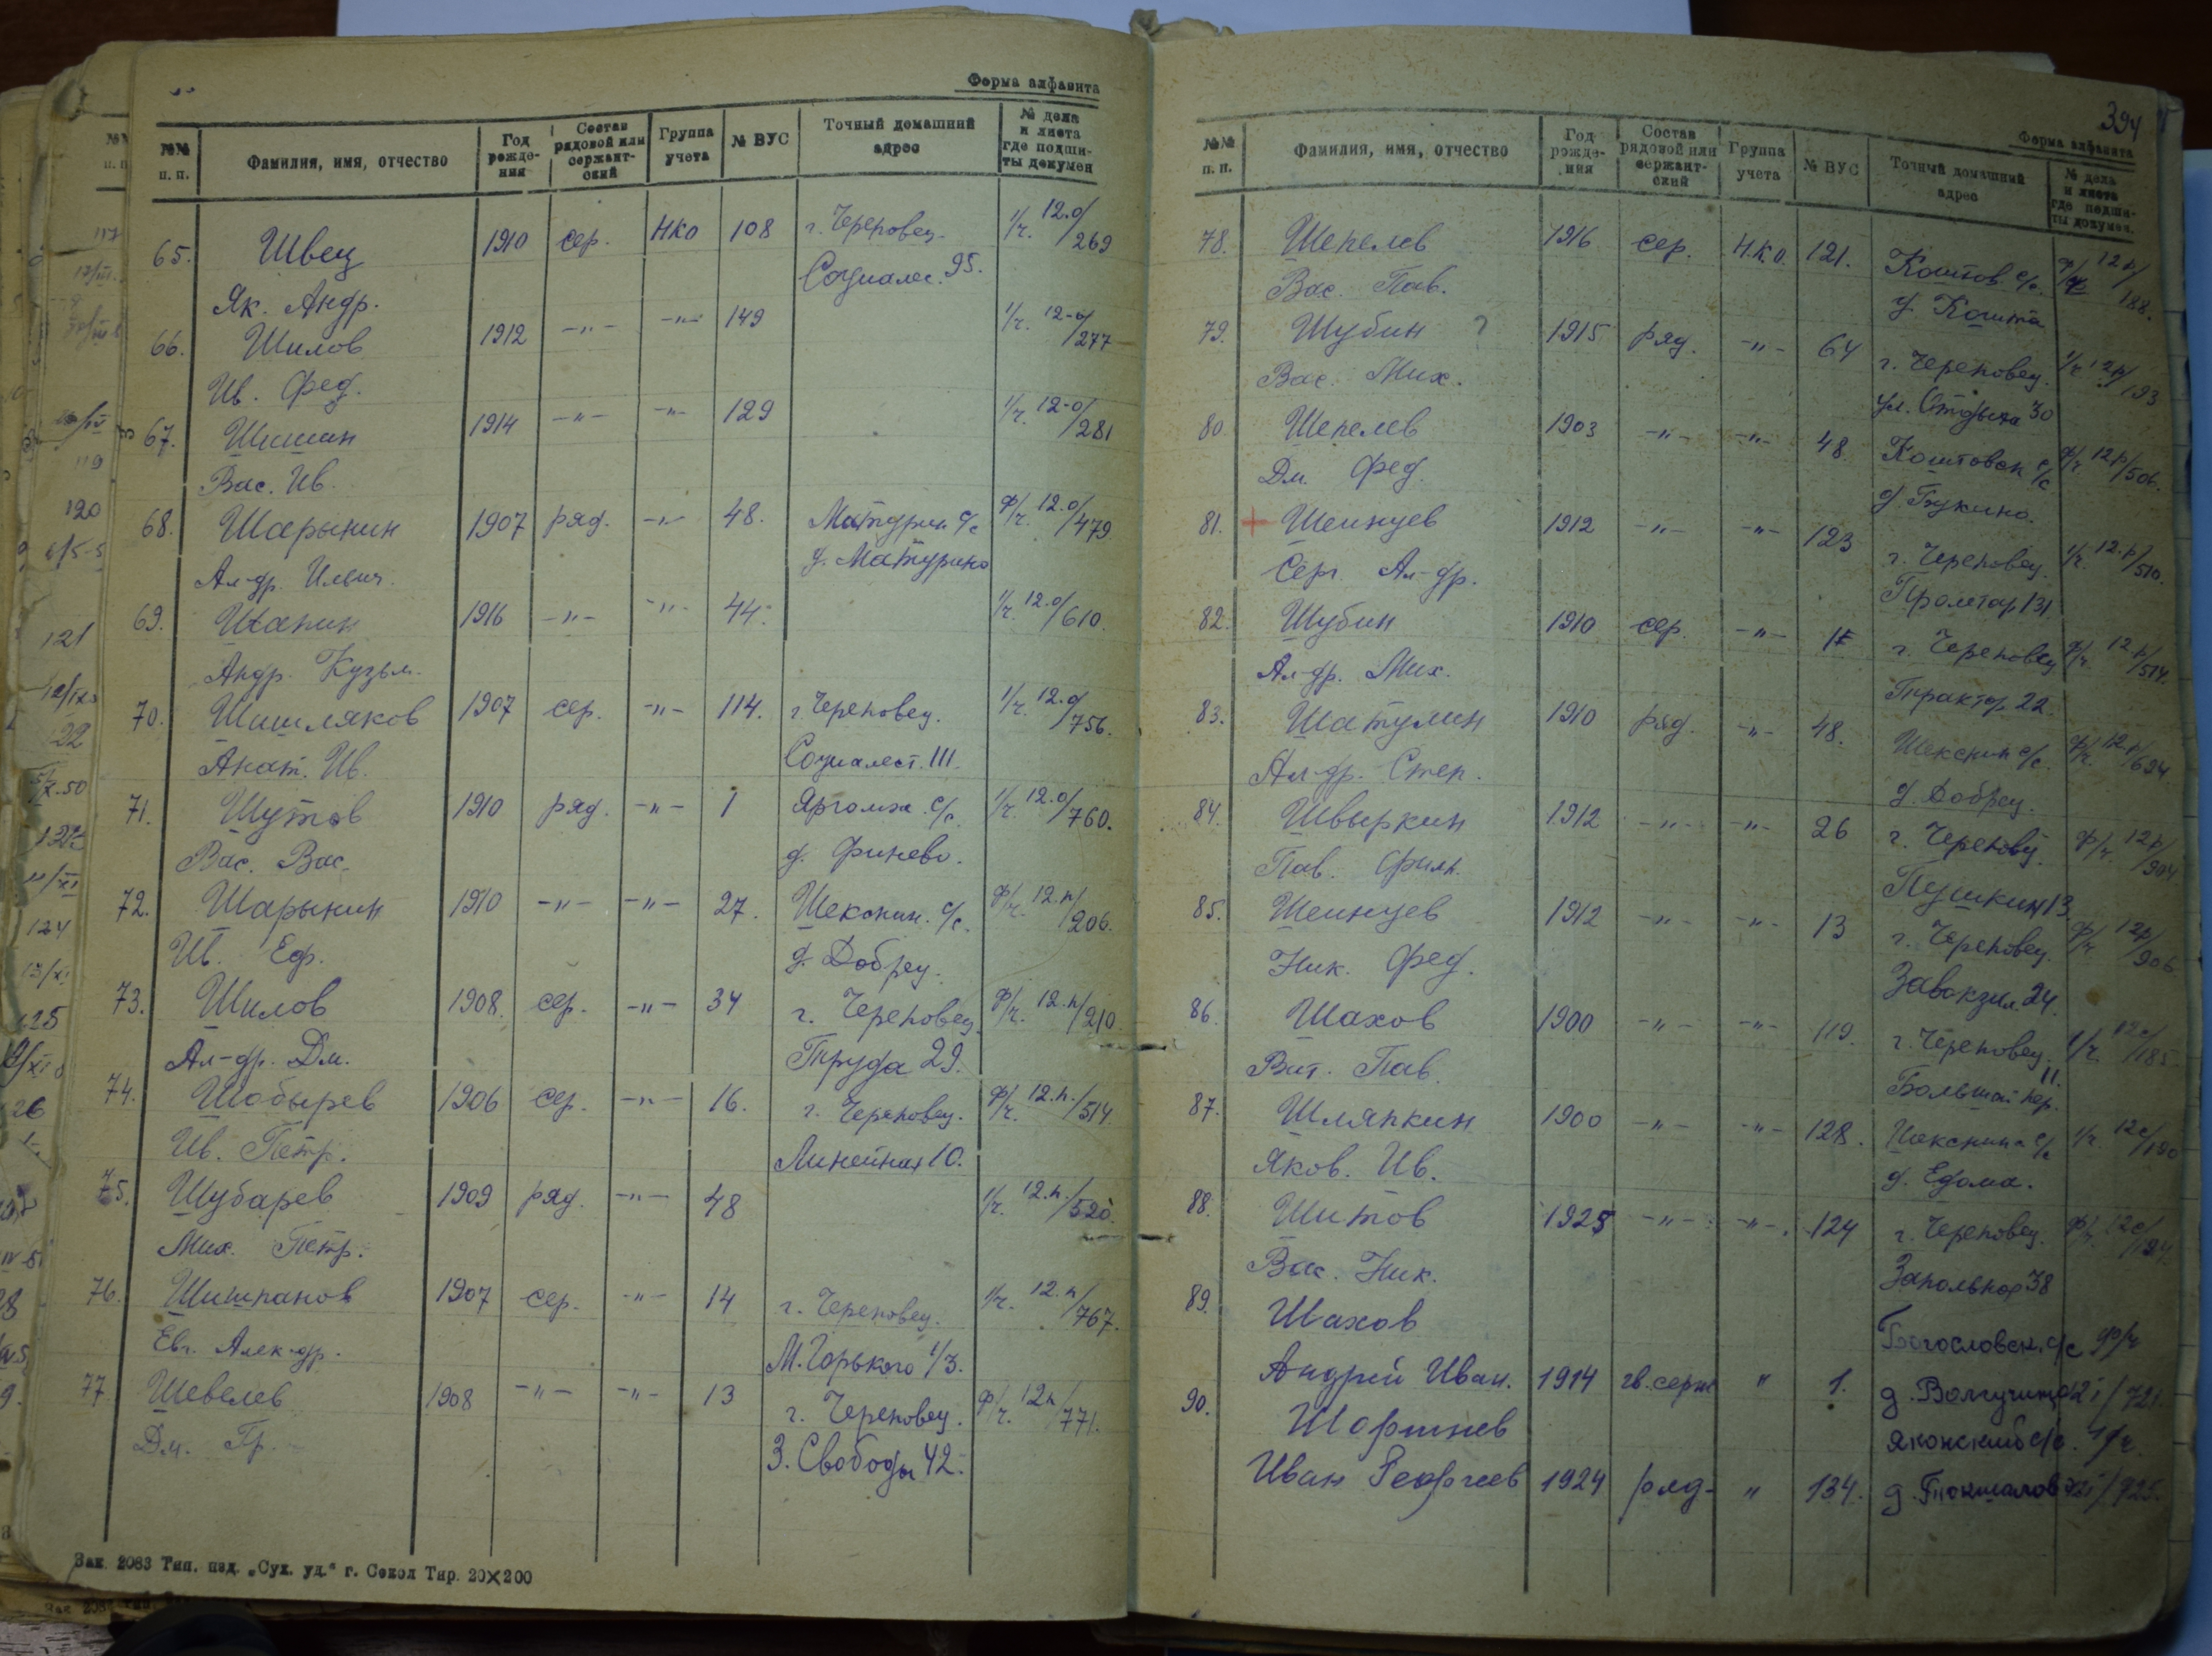 Форма алфавита
№№ п. п. Фамилия, имя, отчество Год рожде- ния Состав рядовой или сержант- ский Группа учета № ВУС Точный домашний адрес № дела и листа где подши- ты докумен
65. Швец 1910 сер. НКО 108 г. Череповец 1/ч. 12.о/269
Як. Андр. Социалис. 95.
66. Шилов 1912 -"- -"- 149 1/ч. 12-о/277
Ив. Фед.
67. Шишин 1914 -"- -"- 129 1/ч. 12-о/281
Вас. Ив.
68. Шарынин 1907 ряд. -"- 48. Матурин с/с ф/ч. 12.о/479
Ал-др. Ильич. д. Матурино
69. Шанин 1916 -"- -"- 44. 1/ч. 12.о/610.
Андр. Кузьм.
70. Шишляков 1907 сер. -"- 114. г. Череповец. 1/ч. 12.о/756.
Анат. Ив. Социалест. 111.
71. Шутов 1910 ряд. -"- 1 Яргомж с/с. 1/ч. 12.о/760.
Вас. Вас. д. Финево.
72. Шарынин 1910 -"- -"- 27. Шекснин. с/с. ф/ч. 12.п/206.
Ив. Еф. д. Добрец.
73. Шилов 1908. сер. -"- 34 г. Череповец. ф/ч. 12.п/210.
Ал-др. Дм. Труда 29.
74. Шобырев 1906 сер. -"- 16. г. Череповец. ф/ч. 12.п./514.
Ив. Петр. Линейная 10.
75. Шубарев 1909 ряд. -"- 48 1/ч. 12.п./520.
Мих. Петр.
76. Шишпанов 1907 сер. -"- 14 г. Череповец. 1/ч. 12.п/767.
Евг. Алек-др. М. Горького 1/3.
77 Шевелев 1908 -"- -"- 13 г. Череповец. ф/ч. 12п/771.
Дм. Гр. З. Свободы 42.
Зак. 2083 Тип. изд. „Сух. уд." г. Сокол Тир. 20×200
394
Форма алфавита
№№ п. п. Фамилия, имя, отчество Год рожде- ния Состав рядовой или сержант- ский Группа учета № ВУС Точный домашний адрес № дела и листа где подши- ты докумен.
78. Шепелев 1916 сер. Н.К.О. 121. Коштов. с/с. ф/ч 12п/188.
Вас. Пав. д. Кошта
79. Шубин ? 1915 ряд. -"- 64 г. Череповец. 1/ч 12п/193
Вас. Мих. ул. Отдыха 30
80. Шепелев 1903 -"- -"- 48. Коштовск с/с ф/ч. 12п/506.
Дм. Фед. д Букино.
81. + Шеинцев 1912 -"- -"- 123 г. Череповец. 1/ч. 12.п/510.
Серг. Ал-др. Пролетар 131
82. Шубин 1910 сер. -"- г. Череповец ф/ч. 12п/514.
Ал-др. Мих. Трактор. 22.
83. Шатулин 1910 ряд. -"- 48. Шекснин с/с. ф/ч. 12п/624
Ал-др. Степ. д. Добрец.
84. Швыркин 1912 -"- -"- 26 г. Череповец. ф/ч. 12п/904
Пав. Филп. Пушкин 13.
85. Шеинцев 1912 -"- -"- 13 г. Череповец. ф/ч 12п/906
Ник. Фед. Завокзал. 24.
86. Шахов 1900 -"- -"- 119. г. Череповец. 1/ч. 12с/185.
Вит. Пав. Большой пер. 11.
87. Шляпкин 1900 -"- -"- 128. Шекснин с/с 1/ч. 12с/190
Яков. Ив. д. Едома.
88. Шитов 1925 -"- -"- 124 г. Череповец. ф/ч. 12с/194.
Вас. Ник. Запольная 38
89. Шахов Богословск. с/с ф/ч
Андрей Иван. 1914 гв. серж " 1. д. /721.
90. Шоршнев Яконский с/с. 1/ч.
Иван Георгиев 1924 ряд- " 134. /925.